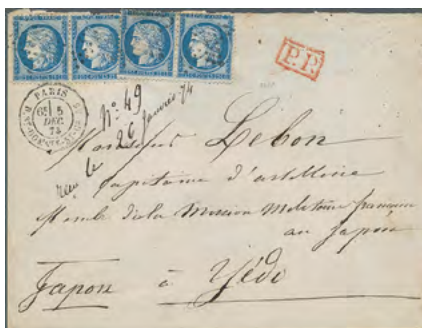 P.P.
PARIS
6E 5
DEC
73
N° 49
reçu le 26 Janvier 74
Monsieur Lebon
Capitaine d'artillerie
Memb de la Mission Militaire française
au Japon
Japon à Yédo